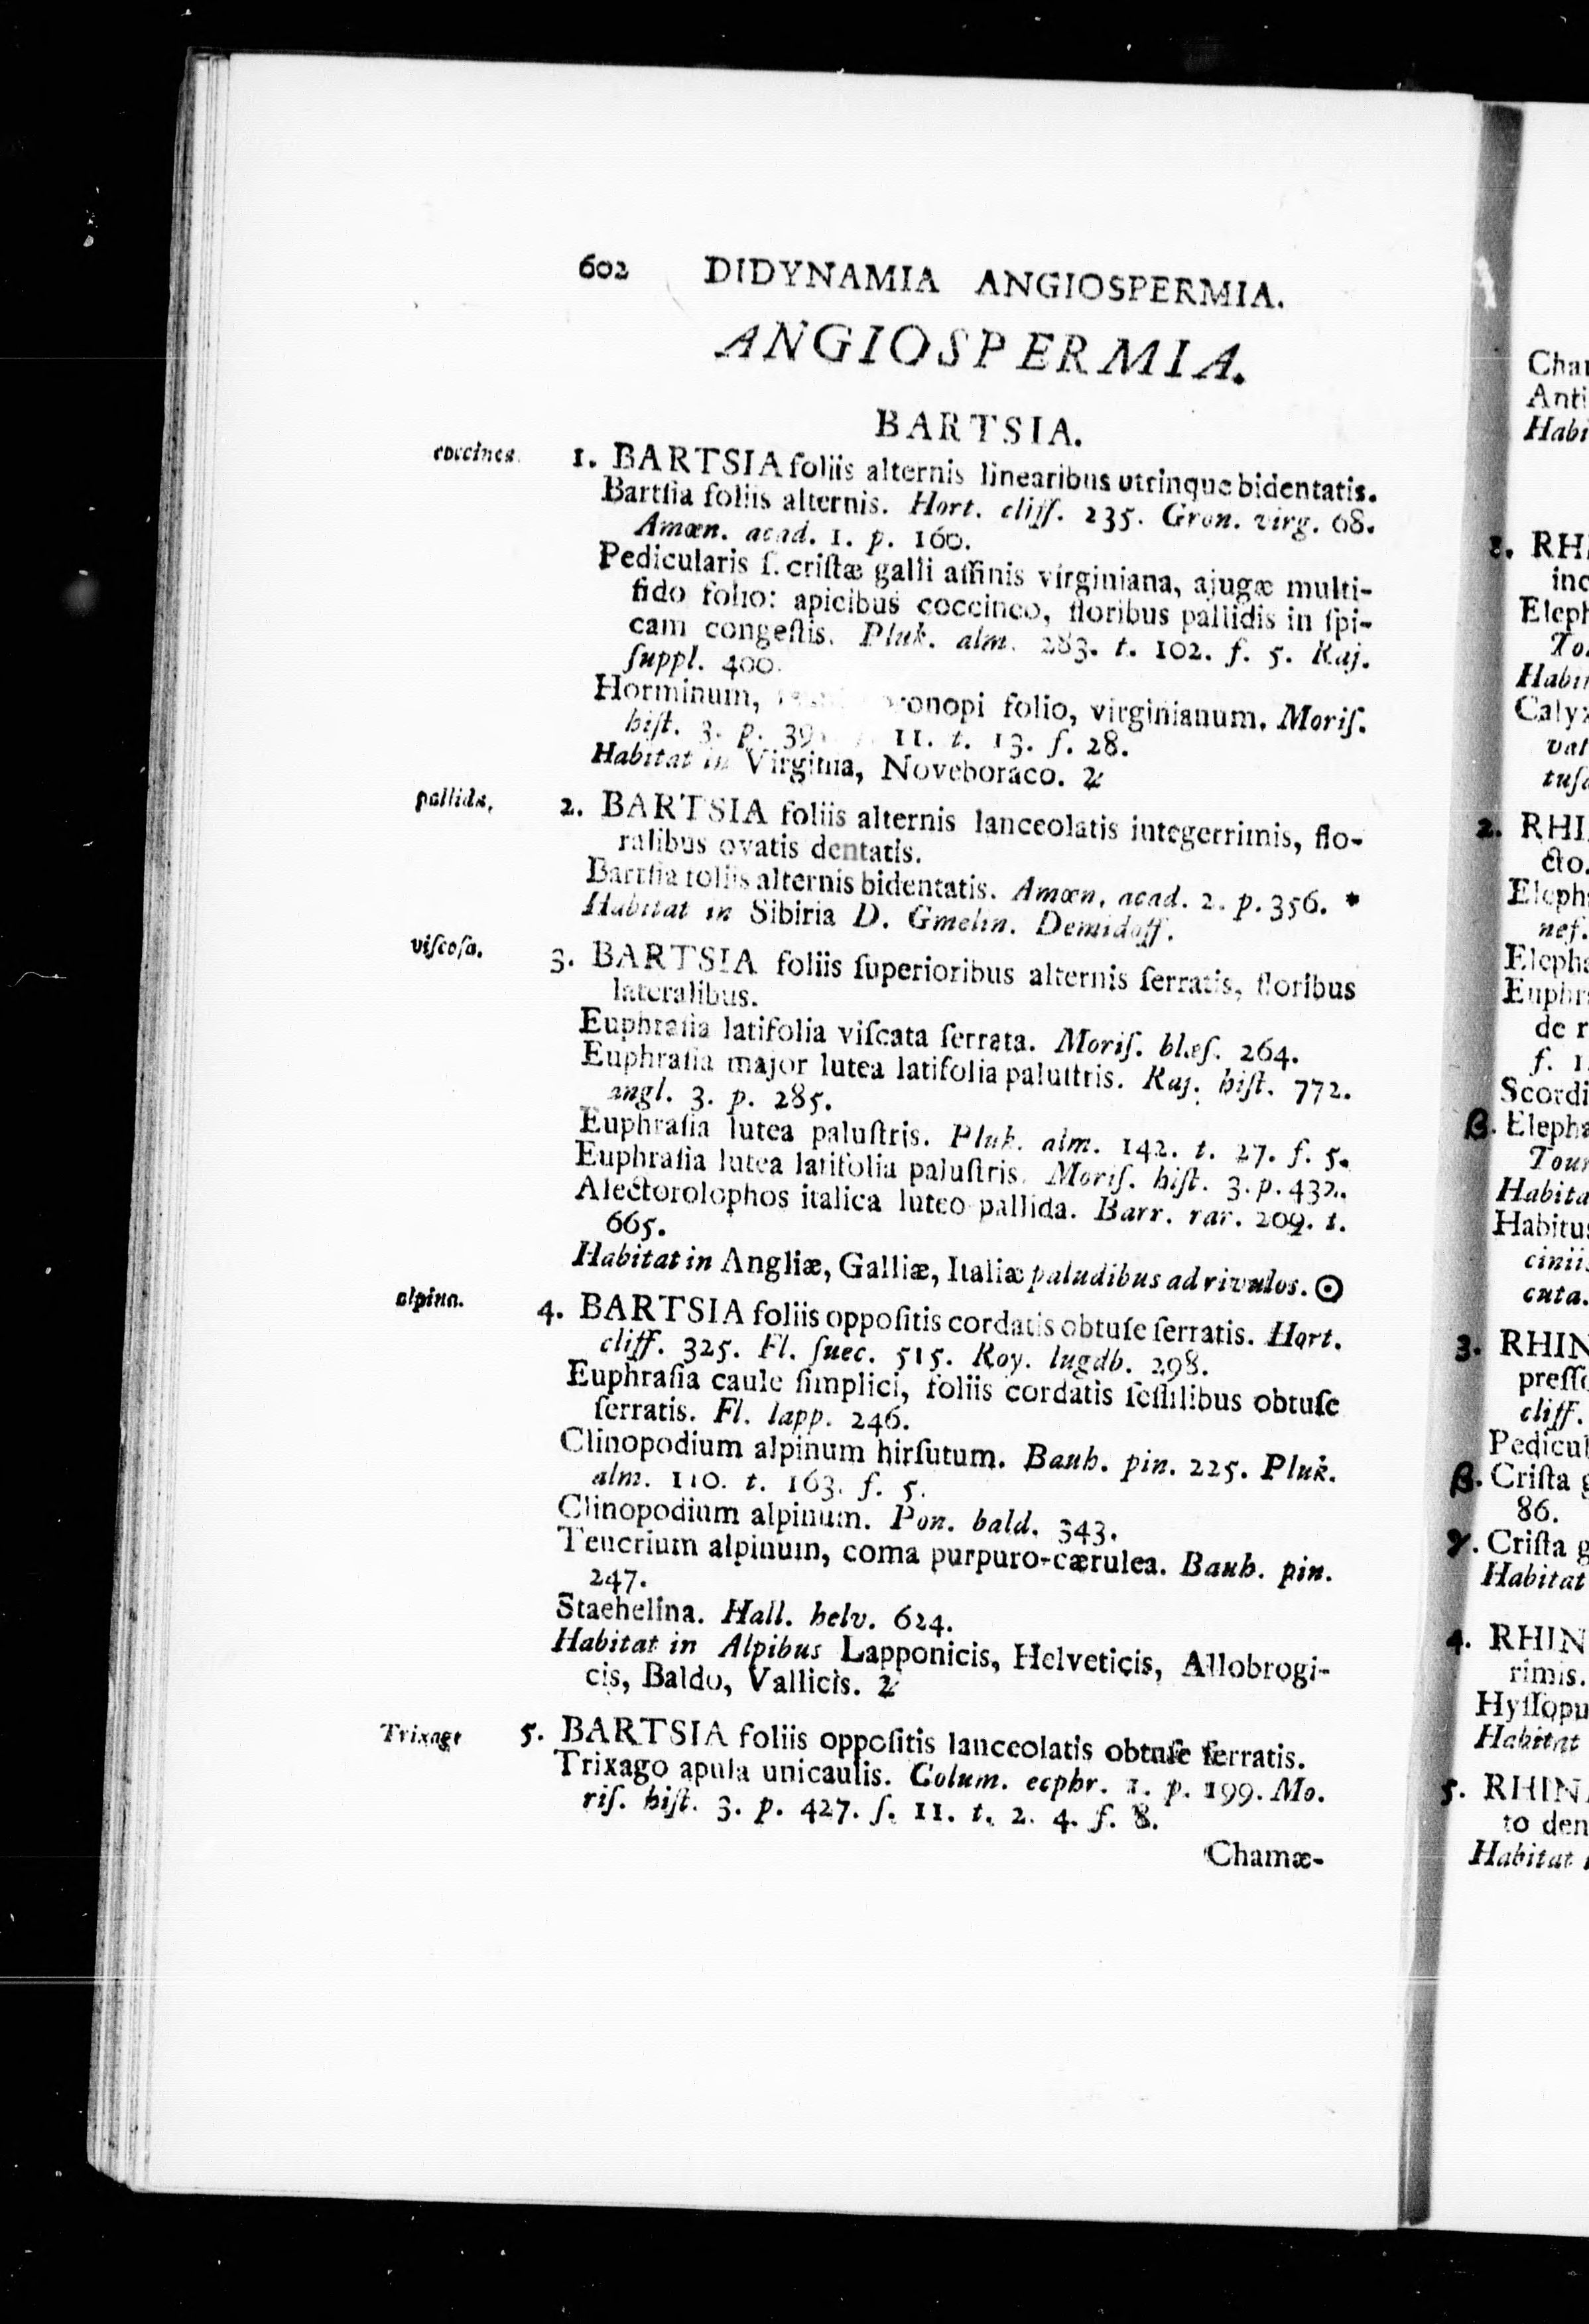 602 DIDYNAMIA ANGIOSPERMIA.
ANGIOSPERMIA.
BARTSIA.
coccinea. 1. BARTSIA foliis alternis linearibus utrinque bidentatis.
Bartſia foliis alternis. Hort. cliff. 235. Gron. virg. 68.
Amœn. acad. 1. p. 160.
Pedicularis ſ. criſtæ galli affinis virginiana, ajugæ multi-
fido folio: apicibus coccineo, floribus pallidis in ſpi-
cam congeſtis. Pluk. alm. 283. t. 102. f. 5. Raj.
ſuppl. 400.
Horminum, folio, virginianum. Moriſ.
hiſt. 3. p. 11. t. 13. f. 28.
Habitat in Virginia, Noveboraco. ♃
pallida. 2. BARTSIA foliis alternis lanceolatis integerrimis, flo-
ralibus ovatis dentatis.
Bartſia foliis alternis bidentatis. Amœn. acad. 2. p. 356. *
Habitat in Sibiria D. Gmelin. Demidoff.
viſcoſa. 3. BARTSIA foliis ſuperioribus alternis ſerratis, floribus
lateralibus.
Euphraſia latifolia viſcata ſerrata. Moriſ. blæſ. 264.
Euphraſia major lutea latifolia paluſtris. Raj. hiſt. 772.
angl. 3. p. 285.
Euphraſia lutea paluſtris. Pluk. alm. 142. t. 27. f. 5.
Euphraſia lutea latifolia paluſtris. Moriſ. hiſt. 3. p. 432.
Alectorolophos italica luteo pallida. Barr. rar. 209. t.
665.
Habitat in Angliæ, Galliæ, Italiæ paludibus ad rivulos. ☉
alpina. 4. BARTSIA foliis oppoſitis cordatis obtuſe ſerratis. Hort.
cliff. 325. Fl. ſuec. 515. Roy. lugdb. 298.
Euphraſia caule ſimplici, foliis cordatis ſeſſilibus obtuſe
ſerratis. Fl. lapp. 246.
Clinopodium alpinum hirſutum. Bauh. pin. 225. Pluk.
alm. 110. t. 163. f. 5.
Clinopodium alpinum. Pon. bald. 343.
Teucrium alpinum, coma purpuro-cærulea. Bauh. pin.
247.
Staehelina. Hall. helv. 624.
Habitat in Alpibus Lapponicis, Helveticis, Allobrogi-
cis, Baldo, Vallicis. ♃
Trixago 5. BARTSIA foliis oppoſitis lanceolatis obtuſe ſerratis.
Trixago apula unicaulis. Colum. ecphr. 1. p. 199. Mo.
riſ. hiſt. 3. p. 427. ſ. 11. t. 2. 4. f. 8.
Chamæ-
Habi
1. RH
inc
2. RHI
cto.
de r
f. 1.
β.
cuta.
3. RHIN
cliff.
β. Criſta g
86.
γ. Criſta g
Habitat
4. RHIN
rimis.
Habitat
5. RHIN
to den
Habitat